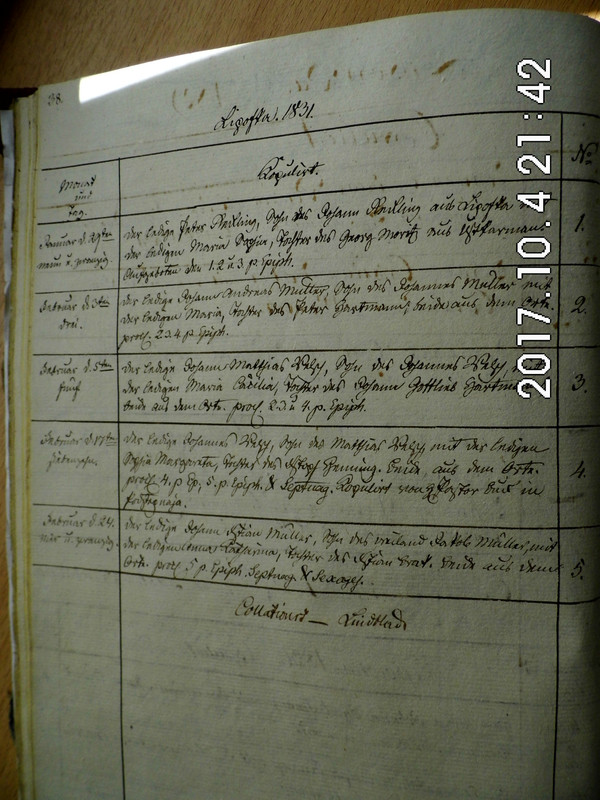 Lipofka. 1831.
Monat
und
Tag.
Kopulirt.
No
Januar d. 29ten
neun u. zwanzig
der ledige Peter Reikling, Sohn des Johann Reikling aus Lipofka
der ledigen Maria Sophia, Tochter des Georg Moritz aus
Aufgeboten den 1. 2 u 3 p. Epiph.
1.
Februar d. 3ten
drei.
der ledige Johann Andreas Müller, Sohn des Johannes Müller mit
der ledigen Maria, Tochter des Peter Hartmann, beide aus dem Orte.
procl. 2. 3. 4. p. Epiph.
2.
Februar d. 5ten
fünf
der ledige Johann Matthias Welsch, Sohn des Johannes Welsch, mit
der ledigen Maria Cäcilia, Tochter des Johann Gottlieb Hartmann
beide aus dem Orte. procl. 2. 3 u 4. p. Epiph.
3.
Februar d. 17ten
siebenzehn.
der ledige Johannes Welsch, Sohn des Matthias Welsch mit der ledigen
Sophia Margaretha, Tochter des Henning. beide aus dem Orte.
procl. 4. p Ep, 5. p. Epiph. & Septuag. Kopulirt von H Pastor in
4.
Februar d. 24.
vier u. zwanzig.
der ledige Johann Müller, Sohn des weiland Jakob Müller, mit
der ledigen Anna Catharina, Tochter des beide aus dem
Orte. procl. 5 p. Epiph. Septuag & Sexages.
5.
Collationirt — Lundblad
2017.10.4 21:42